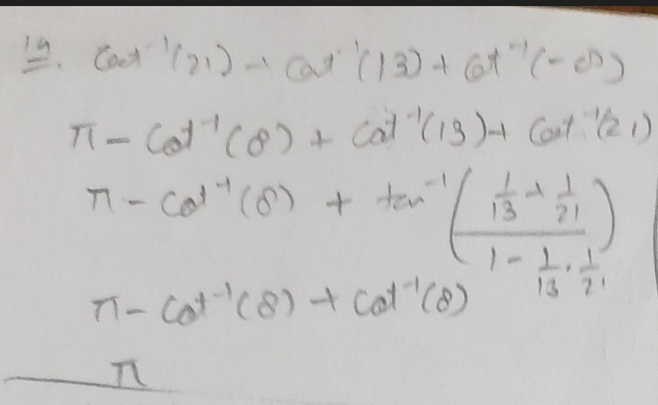 19. cot⁻¹(21) + cot⁻¹(13) + cot⁻¹(-8)
π - cot⁻¹(8) + cot⁻¹(13) + cot⁻¹(21)
π - cot⁻¹(8) + tan⁻¹((1/13 + 1/21)/(1 - 1/13 · 1/21))
π - cot⁻¹(8) + cot⁻¹(8)
π